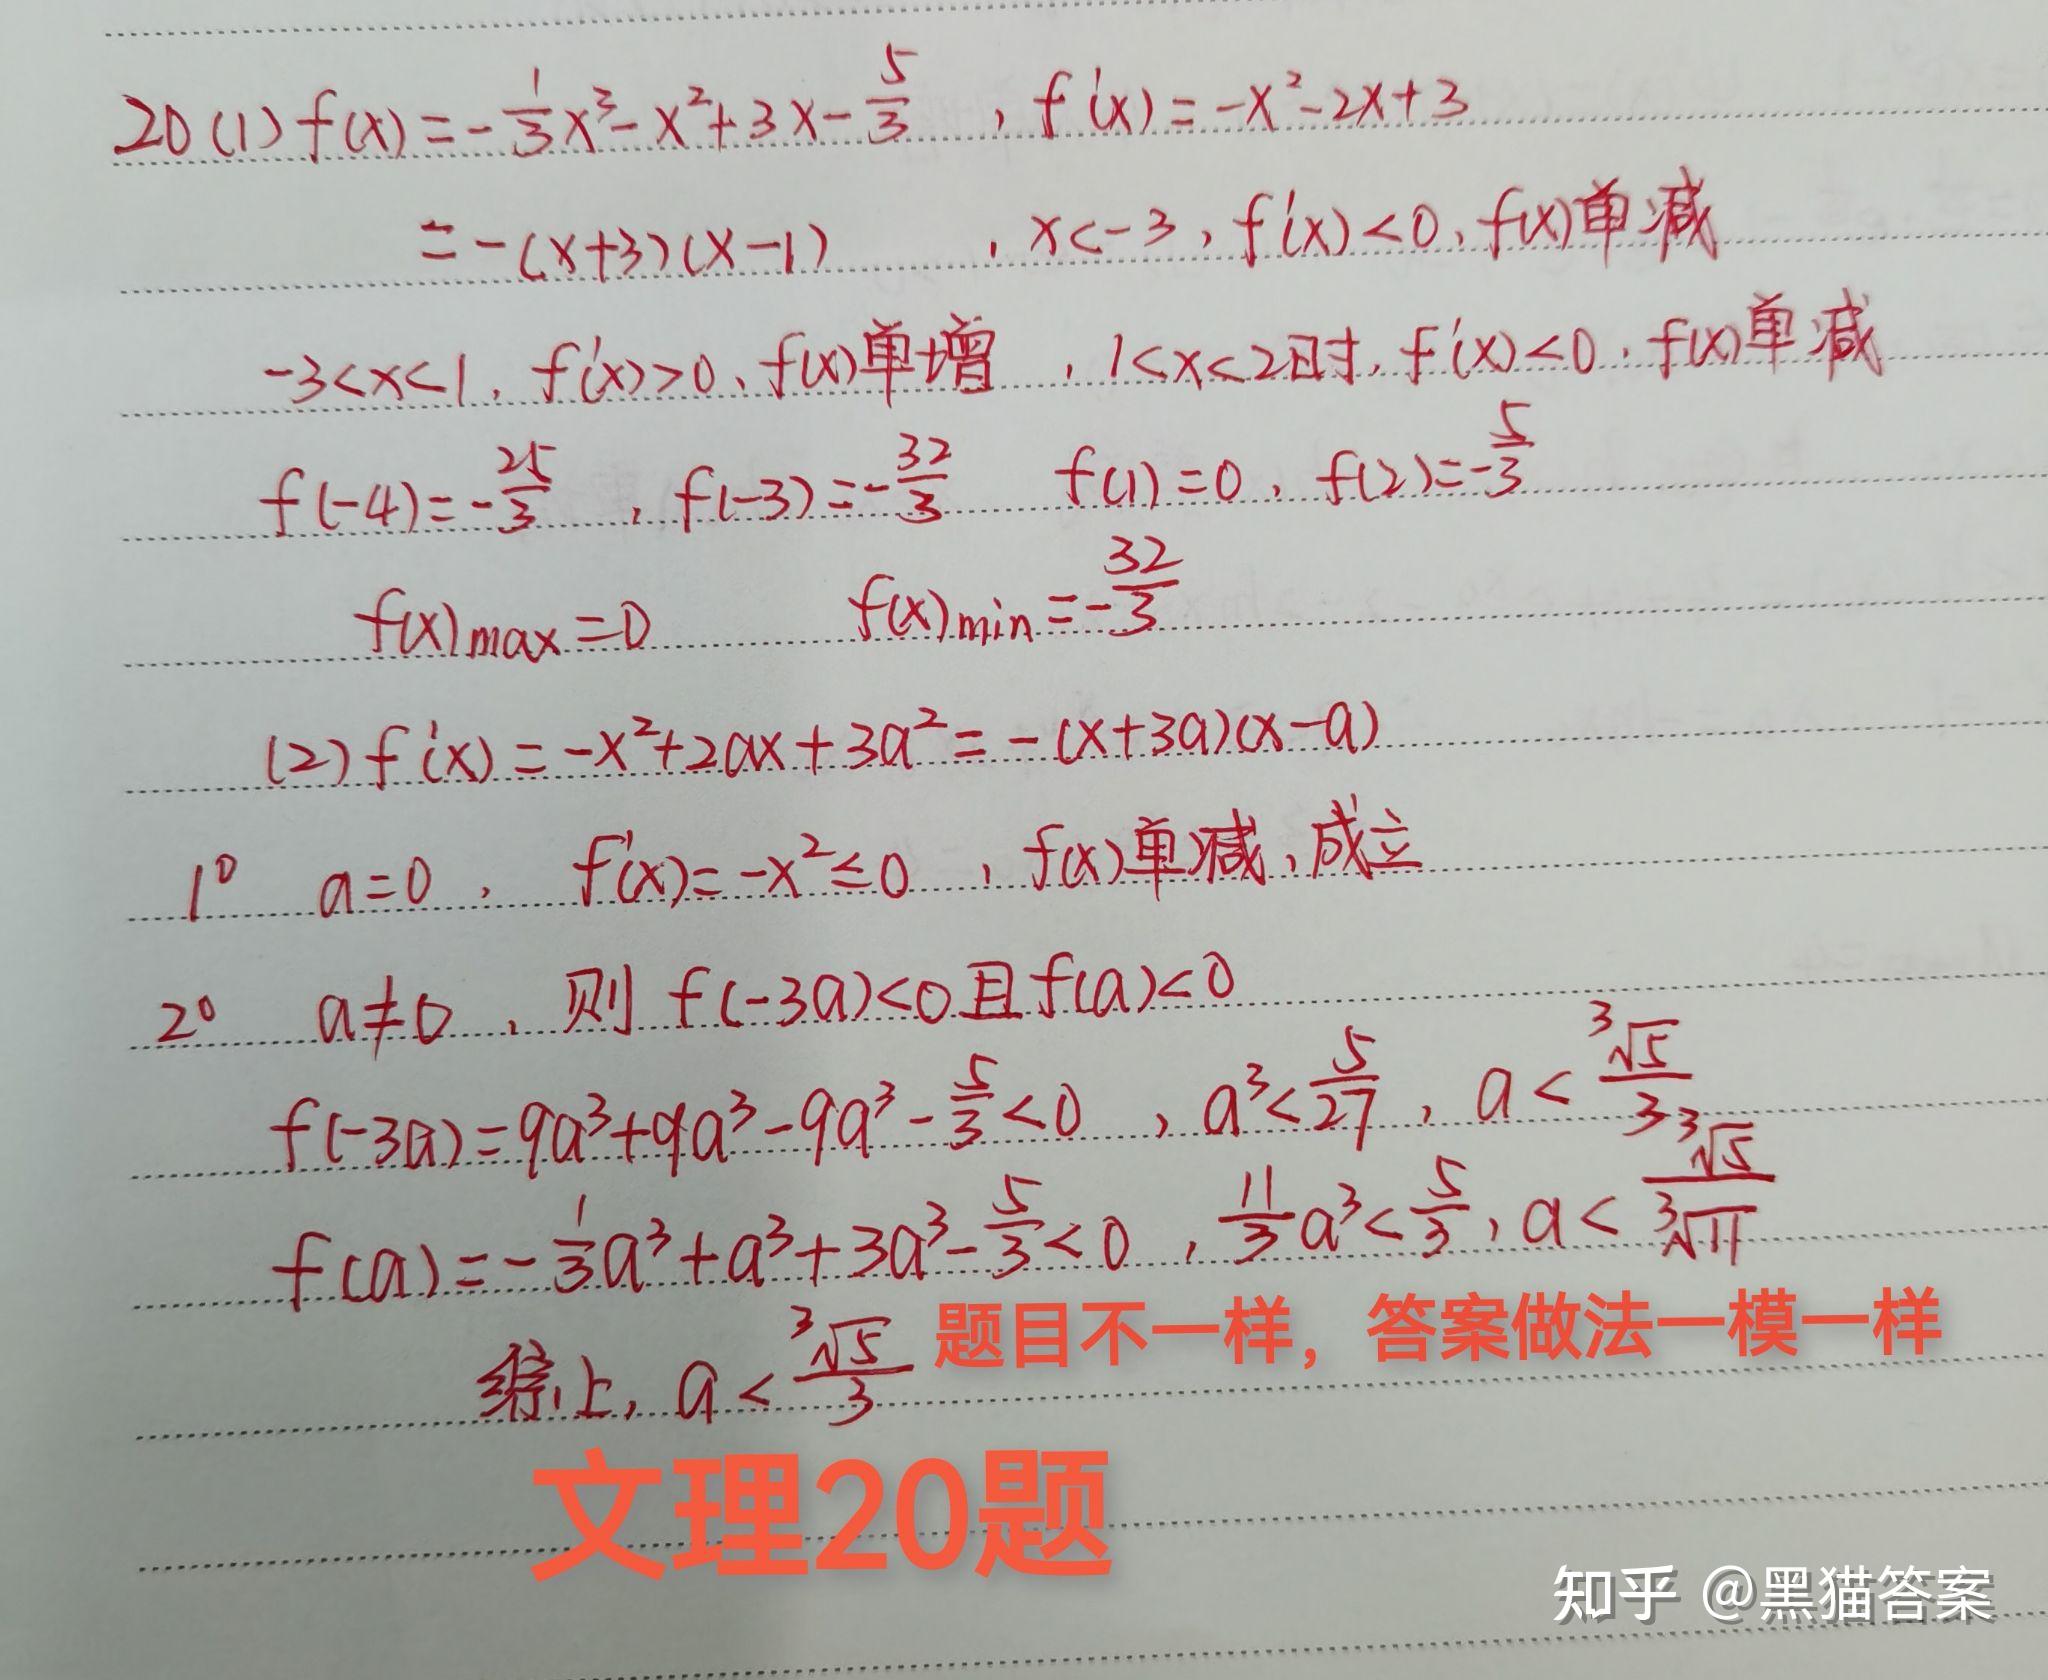 20(1) f(x)=-1/3x³-x²+3x-5/3 , f'(x)=-x²-2x+3
=-(x+3)(x-1) , x<-3, f'(x)<0, f(x)单减
-3<x<1, f'(x)>0, f(x)单增 , 1<x<2时, f'(x)<0, f(x)单减
f(-4)=-25/3 , f(-3)=-32/3 f(1)=0, f(2)=-5/3
f(x)max=0 f(x)min=-32/3
(2) f'(x)=-x²+2ax+3a²=-(x+3a)(x-a)
1° a=0, f'(x)=-x²≤0 , f(x)单减, 成立
2° a≠0, 则 f(-3a)<0且f(a)<0
f(-3a)=9a³+9a³-9a³-5/3<0 , a³<5/27, a<∛5/3
f(a)=-1/3a³+a³+3a³-5/3<0 , 11/3a³<5/3, a<∛5/∛11
综上, a<∛5/3
题目不一样，答案做法一模一样
文理20题
知乎 @黑猫答案